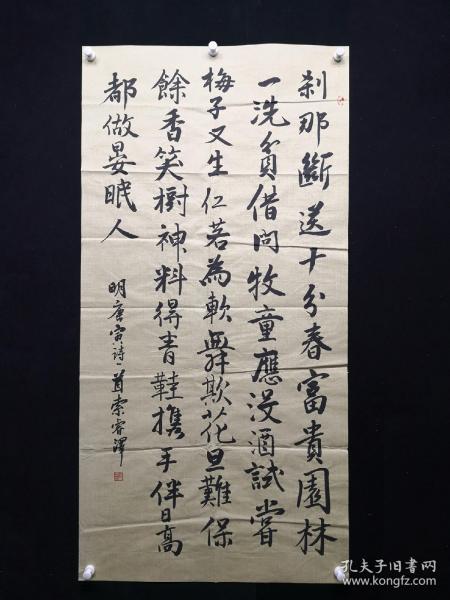 刹那斷送十分春富貴園林
一洗貧借問牧童應沒酒試嘗
梅子又生仁若為軟舞欺花旦難保
餘香笑樹神料得青鞋攜手伴日高
都做晏眠人
明唐寅詩一首索睿澤
孔夫子旧书网
www.kongfz.com